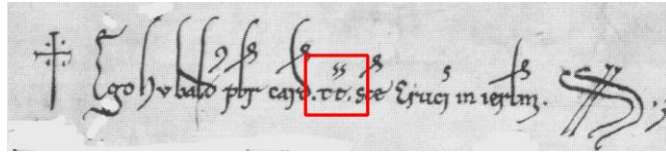 † Ego hubald' pbr card .tt. sce Cruci in ierlm. SS